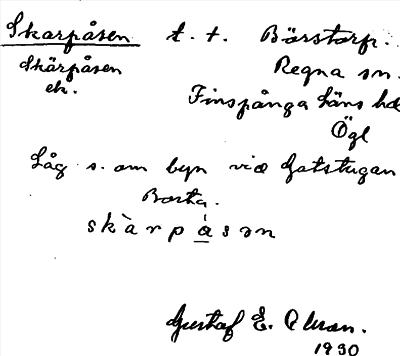 Skarpåsen t. t. Börstorp.
Skärpåsen Regna sn.
ek. Finspånga läns hd
Ögl
Låg s. om byn vid Gatstugan
Borta.
skàrpåsən
Gustaf E. Olsson.
1930